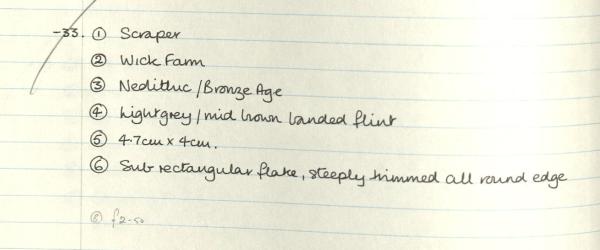 -33. ① Scraper
② Wick Farm
③ Neolithic / Bronze Age
④ Lightgrey / mid brown banded flint
⑤ 4.7cm x 4cm.
⑥ Sub rectangular flake, steeply trimmed all round edge
⑧ £2-50